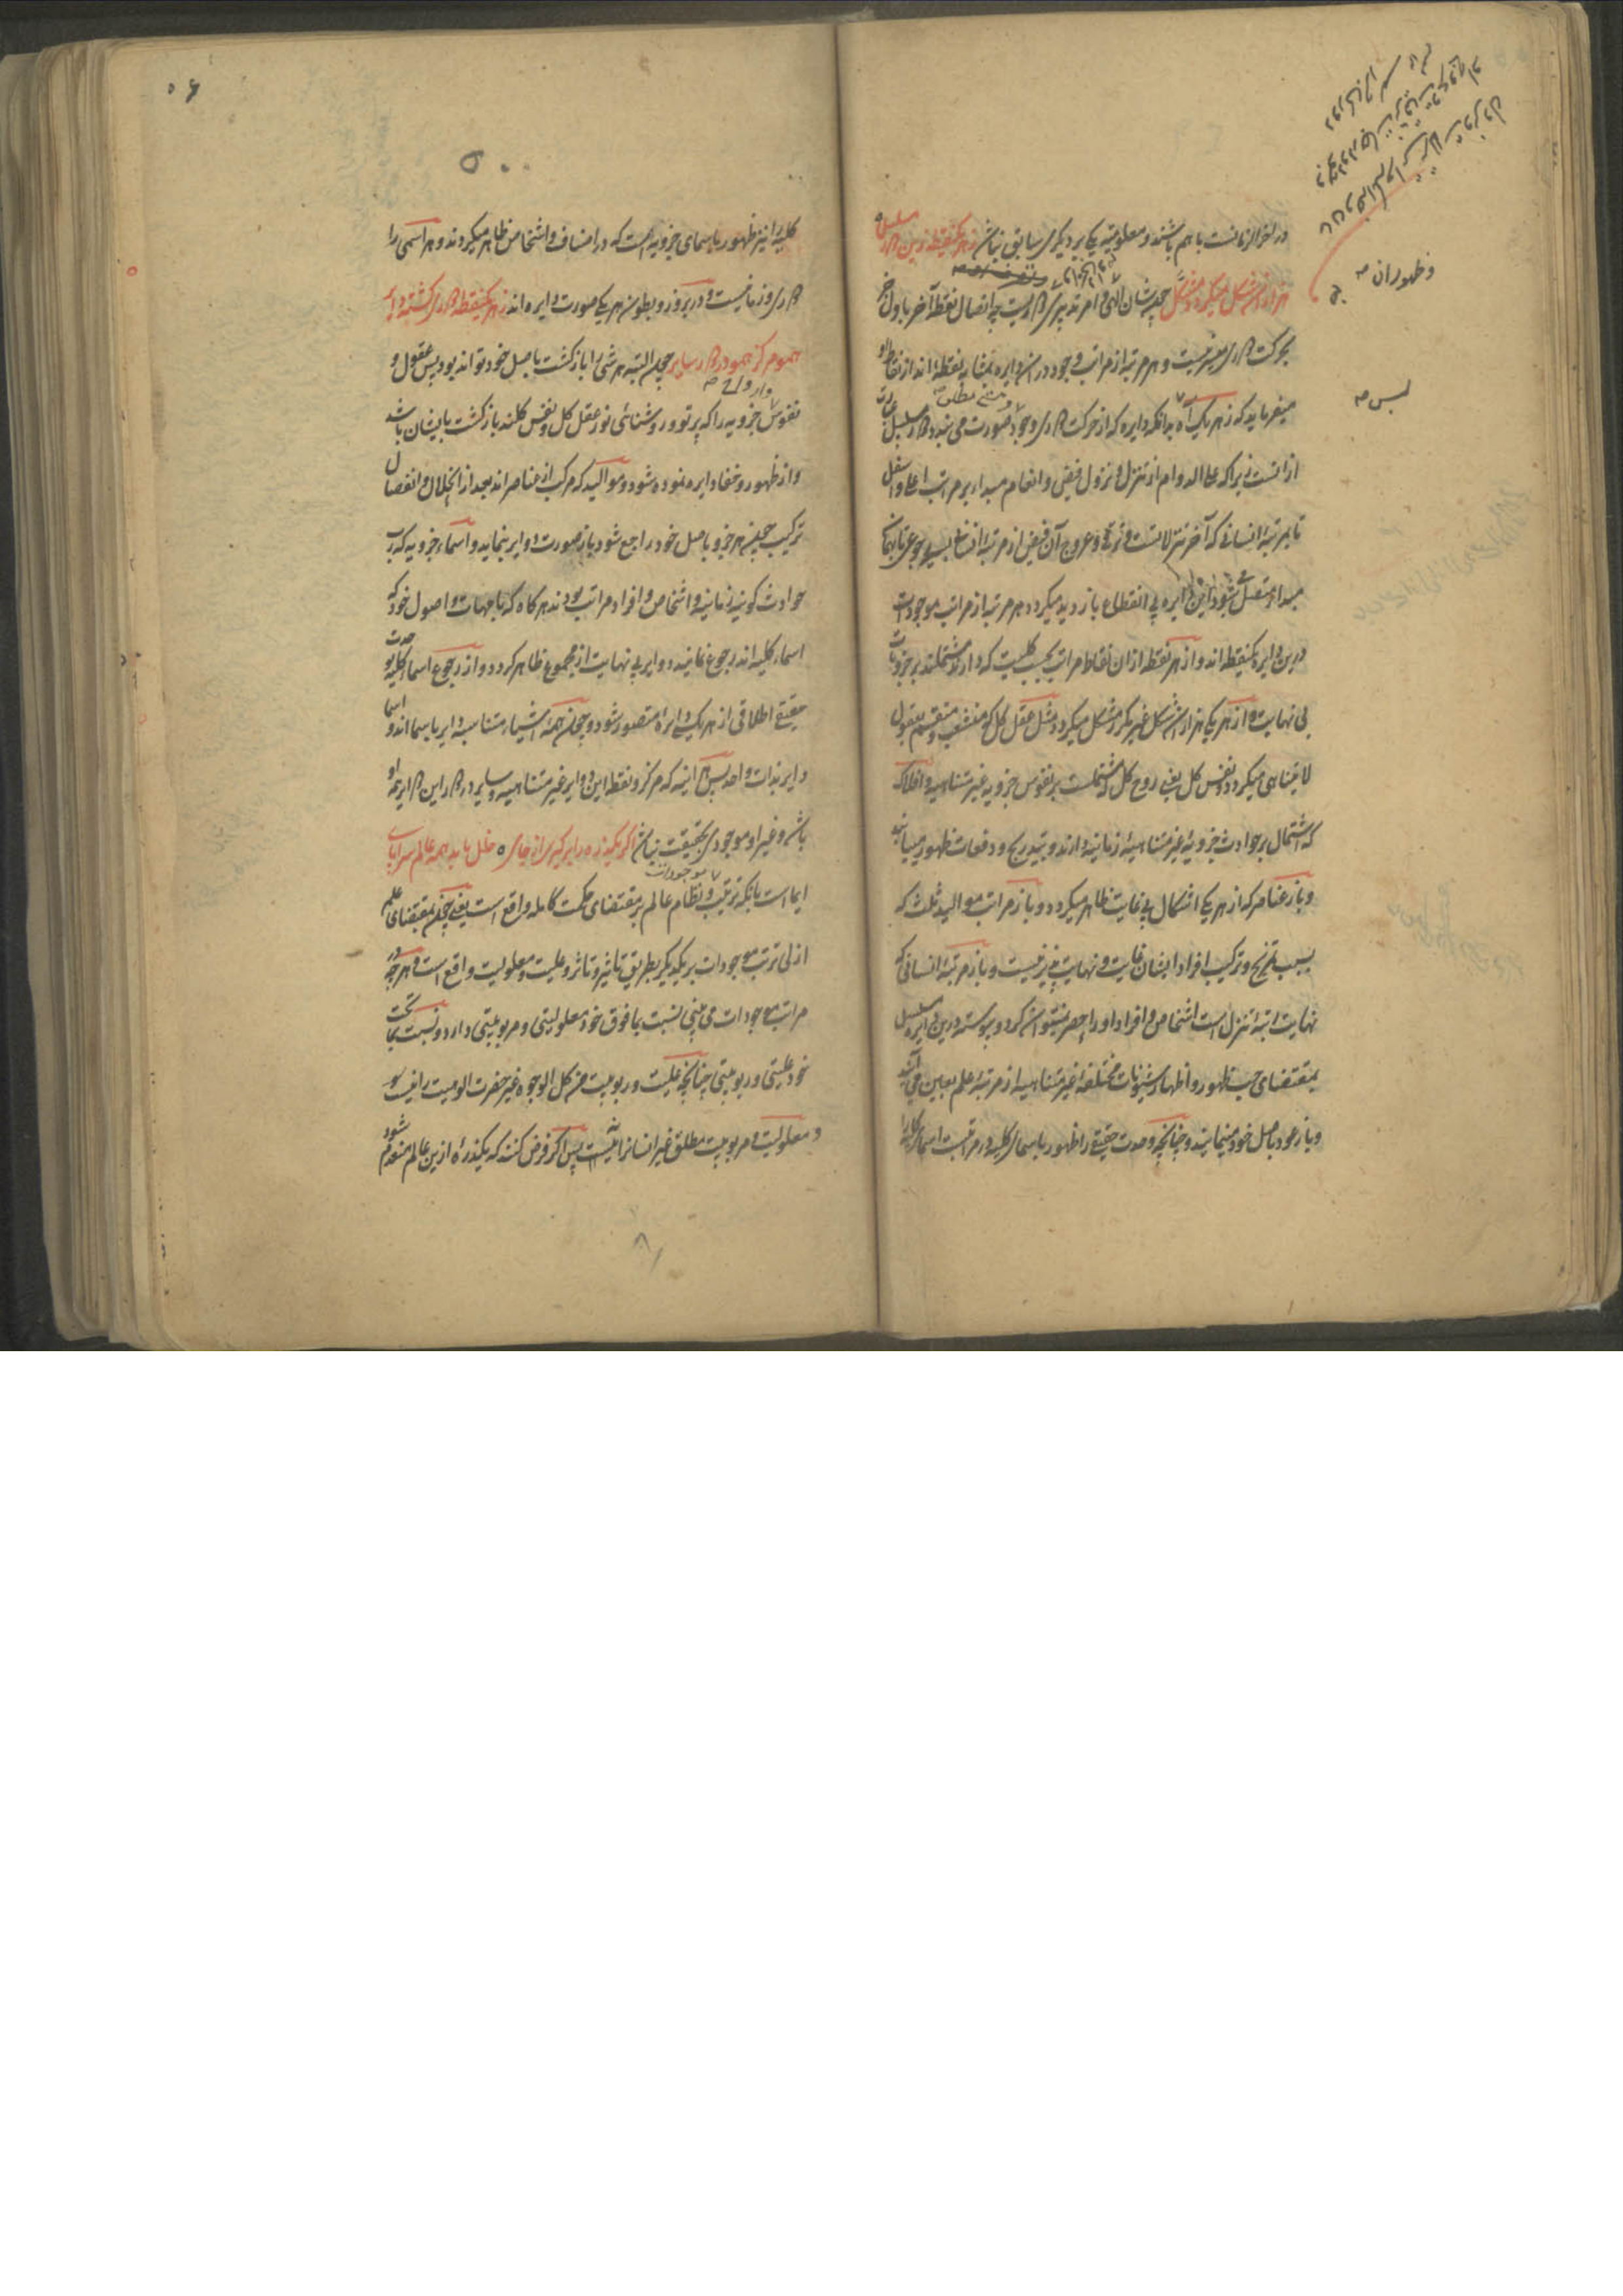 و ظهور ان صه
لیس صه
در لوازم ذات با هم باشند و معلومیت یکی بر دیگری سابق نباشد ز هر یک نقطه زین دور مسلسل
هزاران شکل میگردد مشکل چون شان الهی امر تدبیری دوریست چه اتصال نقطه آخر باول جز
بحرکت دوری میسر نیست و هر مرتبه از مراتب وجود در آن دایره بمثابه نقطه اند از نقاط او
میفرماید که ز هر یک اه بدانکه دایره که از حرکت دوری وجود صورت می بندد دور مسلسل عبارت
ازانست زیرا که علی الدوام از تنزل و نزول فیض و انعام مبداء بر مراتب اعلی و اسفل
تا بمرتبه انسانی که آخر تنزلاتست و ترقی و عروج آن فیض از مرتبه انسانی بسیر رجوعی تا بهمان
مبداء متصل شود این دایره بی انقطاع بازدید میگردد هر مرتبه از مراتب موجودات
درین دایره یک نقطه اند و از هر نقطه ازان نقاط مراتب بحسب کلیت که دارند و مشتملند بر جزویات
بی نهایت و از هر یکی هزاران شکل غیر مکرر مشکل میگردد مثل عقل کل که منشعب و منقسم بعقول
لا یتناهی میگردد و نفس کل یعنی روح کل که مشتملست بر نفوس جزویه غیر متناهیه و افلاک
که اشتمال بر حوادث جزویه غیر متناهیه زمانیه دارند و بتدریج و دفعات بظهور میرسانند
و باز عناصر که از هر یکی اشکال بی غایت ظاهر میگردد و باز مراتب موالید ثلث که
بسبب تمزیج و ترکیب افراد ایشان غایت و نهایت پذیر نیست و باز مرتبه انسانی که
نهایت مرتبه تنزل است اشخاص و افراد او را حصر نمیتوان کرد و پیوسته درین دایره مسلسل
بمقتضای حب ظهور و اظهار شیونات مختلفه غیر متناهیه از مرتبه علم بعین می آیند
و باز عود باصل خود مینمایند و چنانچه وحدت حقیقی را ظهور باسمای کلیه در مراتب است اسمای کلیه را
۵۶
۵۰۰
کلیه را نیز ظهور باسمای جزویه است که در اصناف و اشخاص ظاهر میگردند و هر اسمی را
دوری و زمانیست و در بروز و بطون هر یکی صورت دایره اند ز هر یک نقطه دوری گشته دایر
همو مرکز همو در دور سایر چون البته هر شی را بازگشت باصل خود تواند بود پس عقول و
نفوس جزویه را که پرتو و روشنائی نور عقل کل و نفس کلند بازگشت بایشان باشد
و از ظهور و خفا دایره نموده شود و موالید که مرکب از عناصر اند بعد از انحلال و انفصال
ترکیب چون هر جزو باصل خود راجع شود باز صورت دوایر بنماید و اسماء جزویه که رب
حوادث کونیه زمانیه و اشخاص و افراد مراتب بودند هر گاه که با جهات و اصول خود که
اسماء کلیه اند رجوع نمایند دوایر بی نهایت از مجموع ظاهر گردد و از رجوع اسماء کلیه بوحدت
حقیقی اطلاقی از هر یک دایره متصور شود و چون همه اشیاء متناسبه دایر باسما اند و اسما
دایر بذات واحد پس هر اینه که مرکز و نقطه این دوایر غیر متناهیه و سایر در دور این دایر همه او
باشد و غیر او موجودی بحقیقت نباشد اگر یک ذره را بر گیری از جای ه خلل یابد همه عالم سراپای
ایما است بانکه ترتیب و نظام عالم بر مقتضای حکمت کامله واقع است یعنی چون بمقتضای علم
ازلی ترتب موجودات بر یکدیگر بطریق تاثیر و تاثر و علیت و معلولیت واقع است و هر چه در
مراتب موجودات می بینی نسبت بما فوق خود معلولیتی و مربوبیتی دارد و نسبت بما تحت
خود علیتی و ربوبیتی چنانچه علیت و ربوبیت من کل الوجوه غیر حضرت الوهیت را نیست
و معلولیت و مربوبیت مطلق غیر انسانرا نیست پس اگر فرض کنند که یک ذره ازین عالم منعدم شود